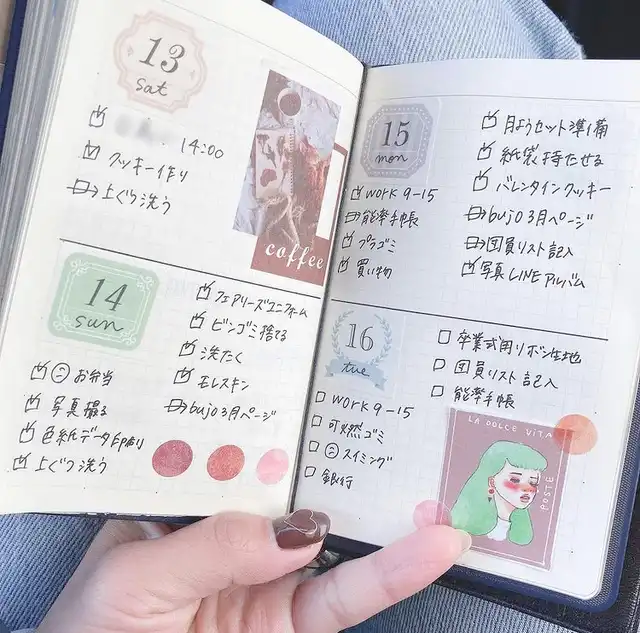 13
sat
14:00
クッキー作り
上ぐつ洗う
coffee
14
sun
お弁当
写真撮る
色紙データ印刷
上ぐつ洗う
フェアリーズユニフォーム
ビンゴミ捨てる
洗たく
モレスキン
bujo3月ページ
15
mon
work 9-15
能率手帳
プラゴミ
買い物
月ようセット準備
紙袋持たせる
バレンタインクッキー
bujo3月ページ
団員リスト記入
写真LINEアルバム
16
tue
work 9-15
可燃ゴミ
スイミング
銀行
卒業式用リボン生地
団員リスト記入
能率手帳
LA DOLCE VITA
POSTE